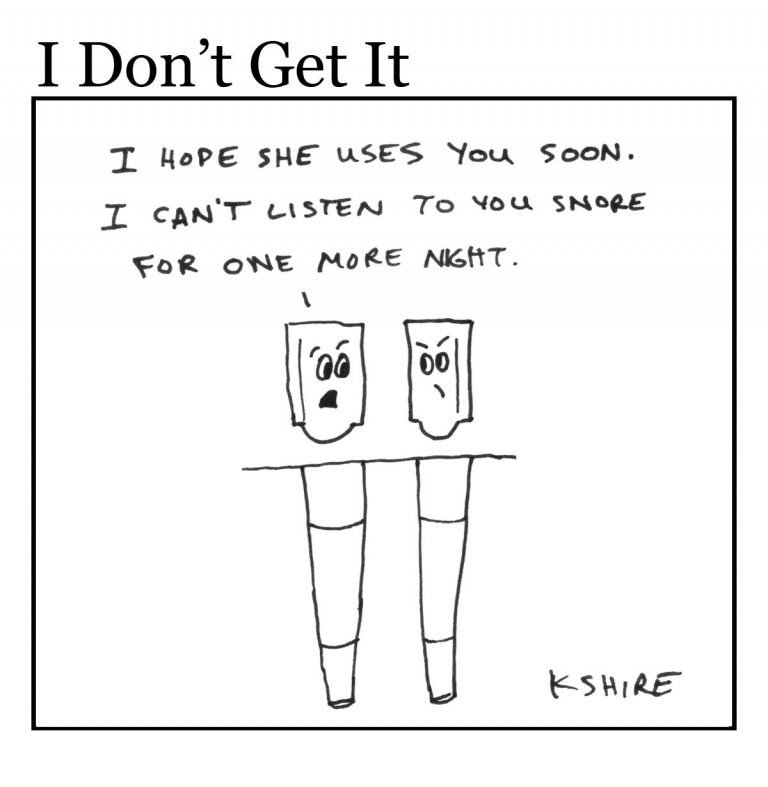 I Don’t Get It
I HOPE SHE USES YOU SOON.
I CAN'T LISTEN TO YOU SNORE
FOR ONE MORE NIGHT.
KSHIRE